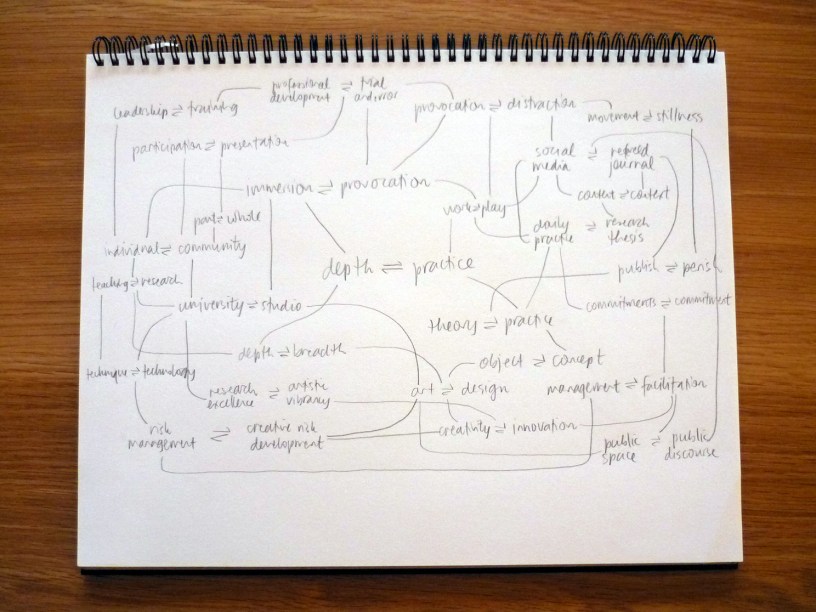 professional development ⇌ trial and error
leadership ⇌ training
provocation ⇌ distraction
movement ⇌ stillness
participation ⇌ presentation
social media ⇌ refereed journal
immersion ⇌ provocation
content ⇌ context
work ⇌ play
part ⇌ whole
daily practice ⇌ research thesis
individual ⇌ community
depth ⇌ practice
publish ⇌ perish
teaching ⇌ research
university ⇌ studio
commitments ⇌ commitment
theory ⇌ practice
depth ⇌ breadth
object ⇌ concept
technique ⇌ technology
research excellence ⇌ artistic vibrancy
art ⇌ design
management ⇌ facilitation
risk management ⇌ creative risk development
creativity ⇌ innovation
public space ⇌ public discourse